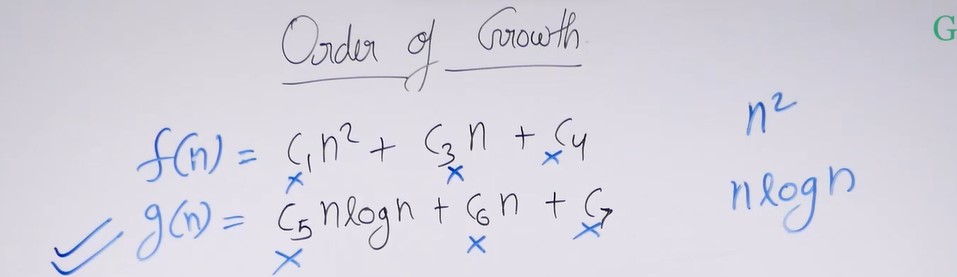 Order of Growth
G
f(n) = C₁n² + C₃n + C₄
n²
g(n) = C₅nlogn + C₆n + C₇
nlogn